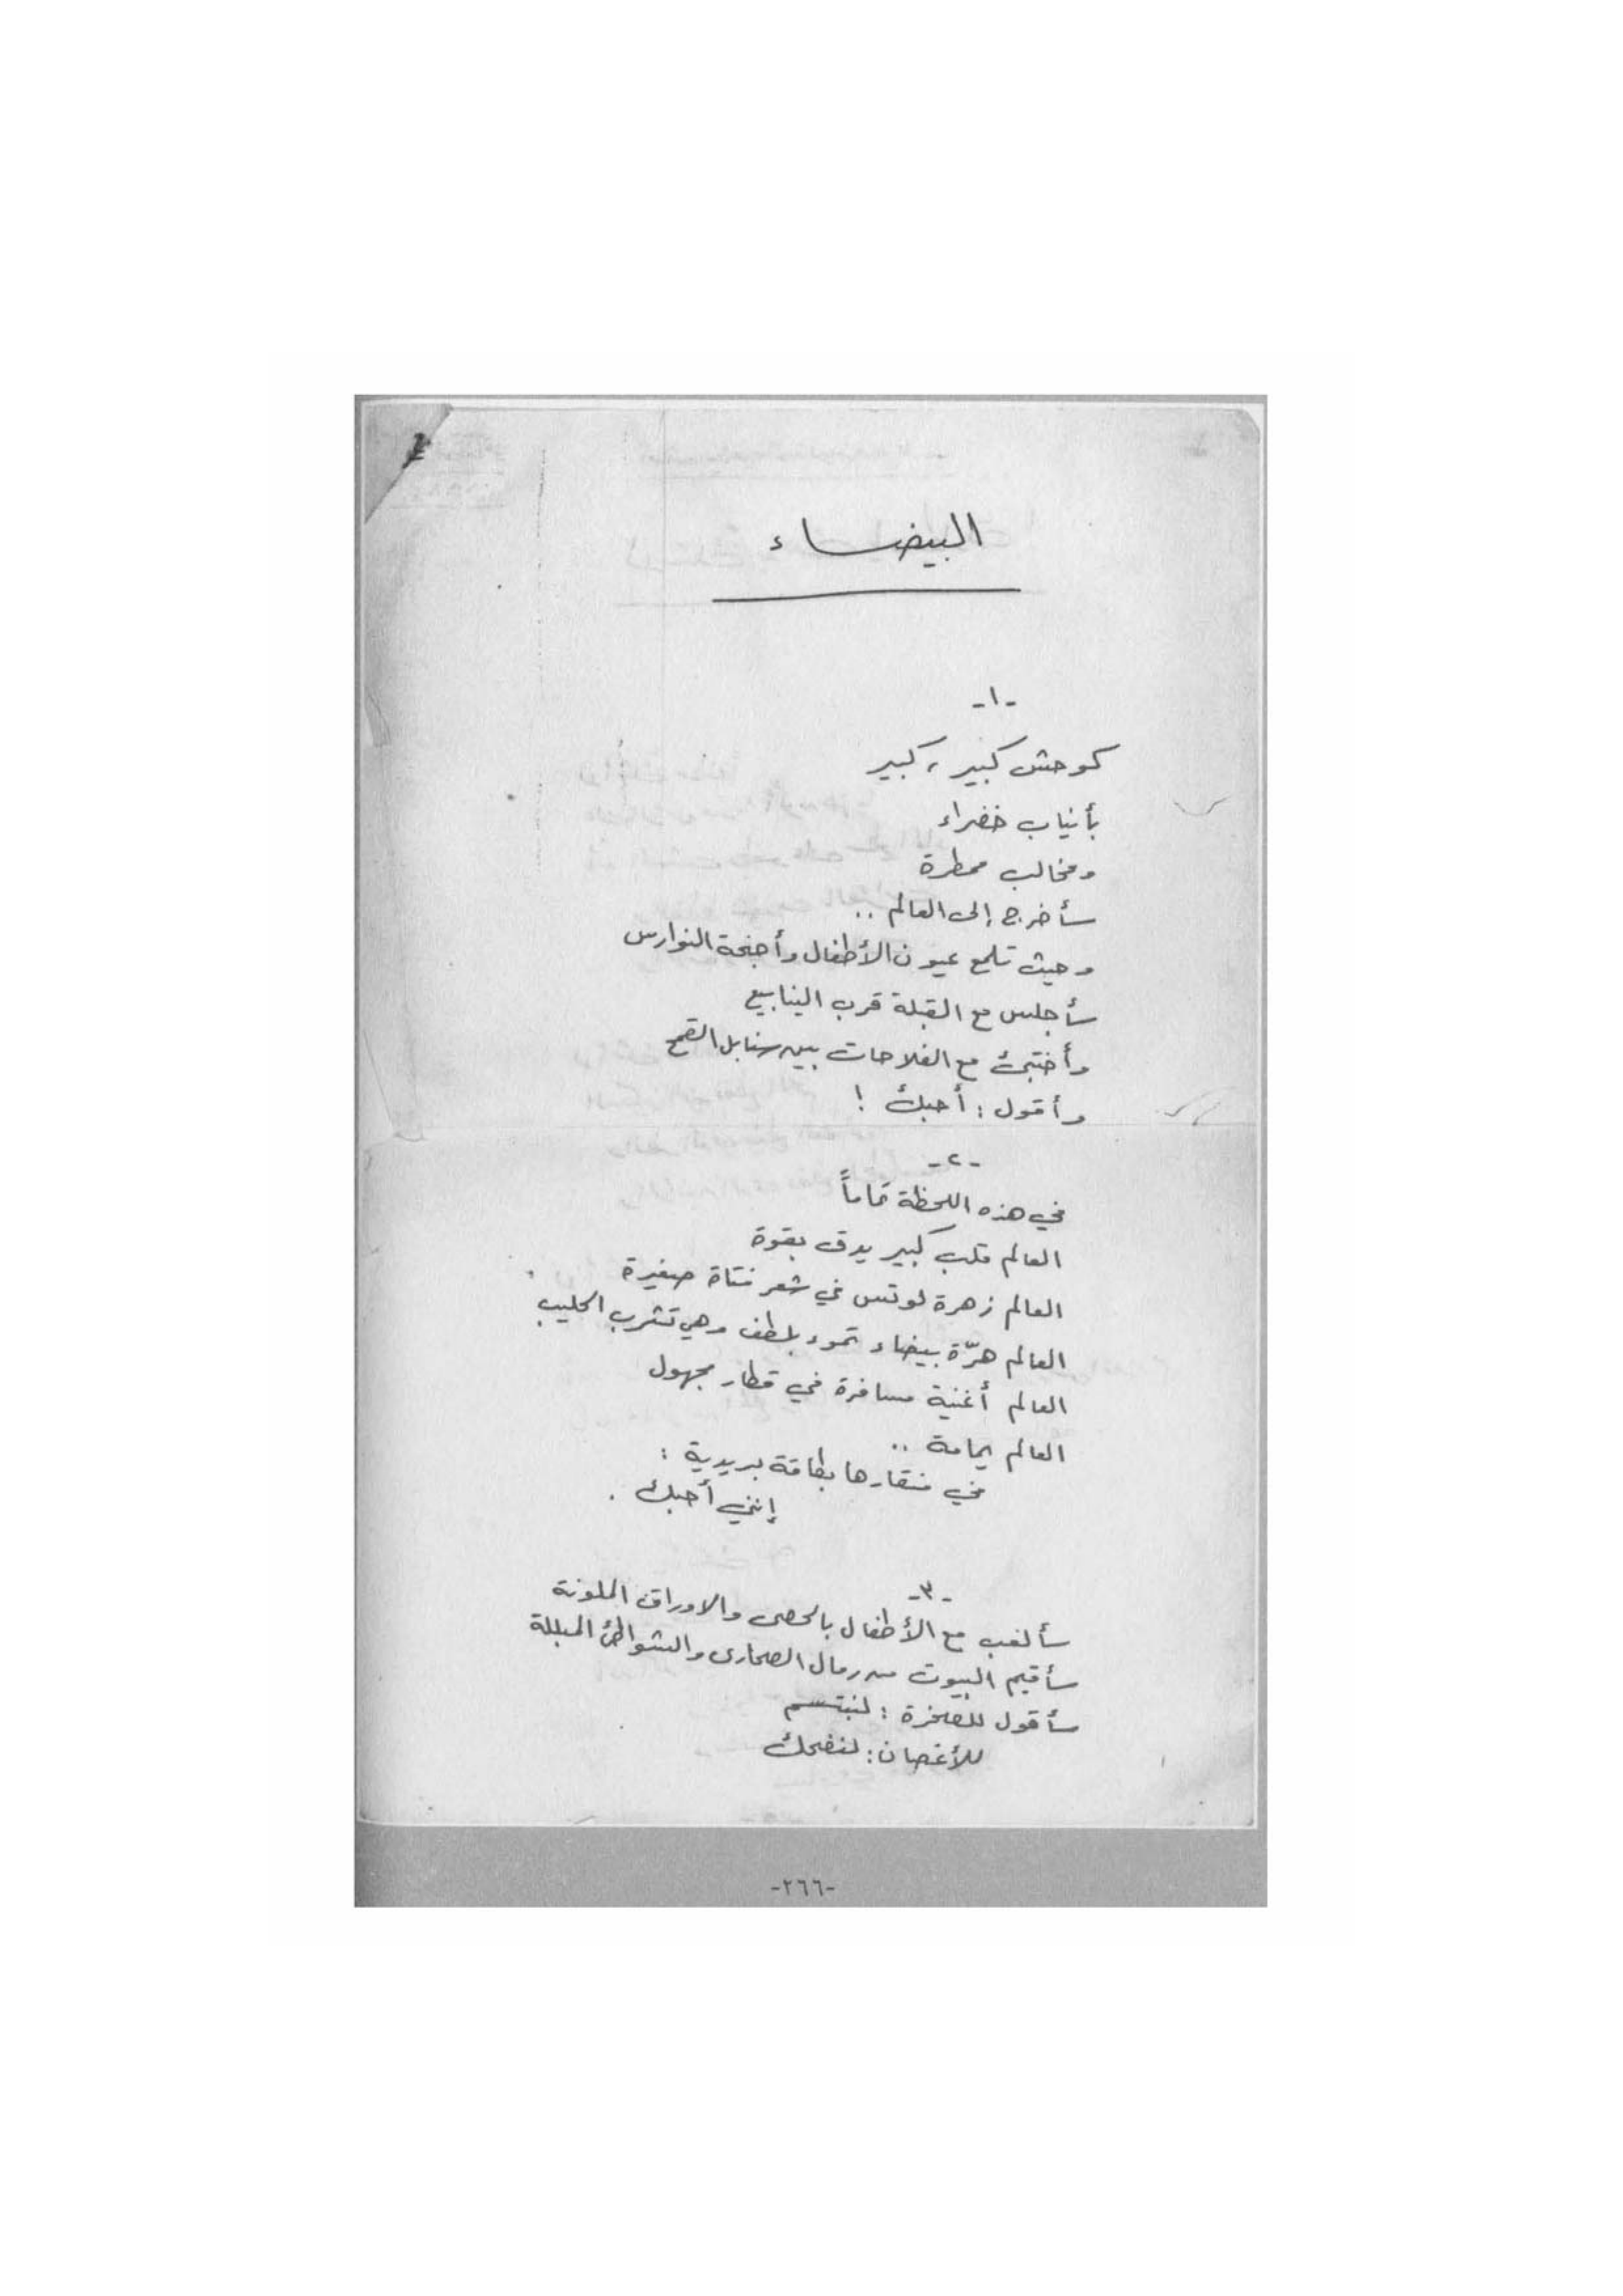 البيضاء
-١-
كوحش كبير، كبير
بأنياب خضراء
ومخالب ممطرة
سأخرج إلى العالم ..
وحيث تلمع عيون الأطفال وأجنحة النوارس
سأجلس مع القبلة قرب الينابيع
وأختبئ مع الفلاحات بين سنابل القمح
وأقول : أحبك !
-٢-
في هذه اللحظة تماماً
العالم قلب كبير يدق بقوة
العالم زهرة لوتس في شعر فتاة صغيرة
العالم هرّة بيضاء تموء بلطف وهي تشرب الحليب
العالم أغنية مسافرة في قطار مجهول
العالم يمامة ..
في منقارها بطاقة بريدية :
إنني أحبك .
-٣-
سألعب مع الأطفال بالحصى والاوراق الملونة
سأقيم البيوت من رمال الصحارى والشواطئ المبللة
سأقول للصخرة : لنبتسم
للأغصان : لنضحك
-٢٦٦-